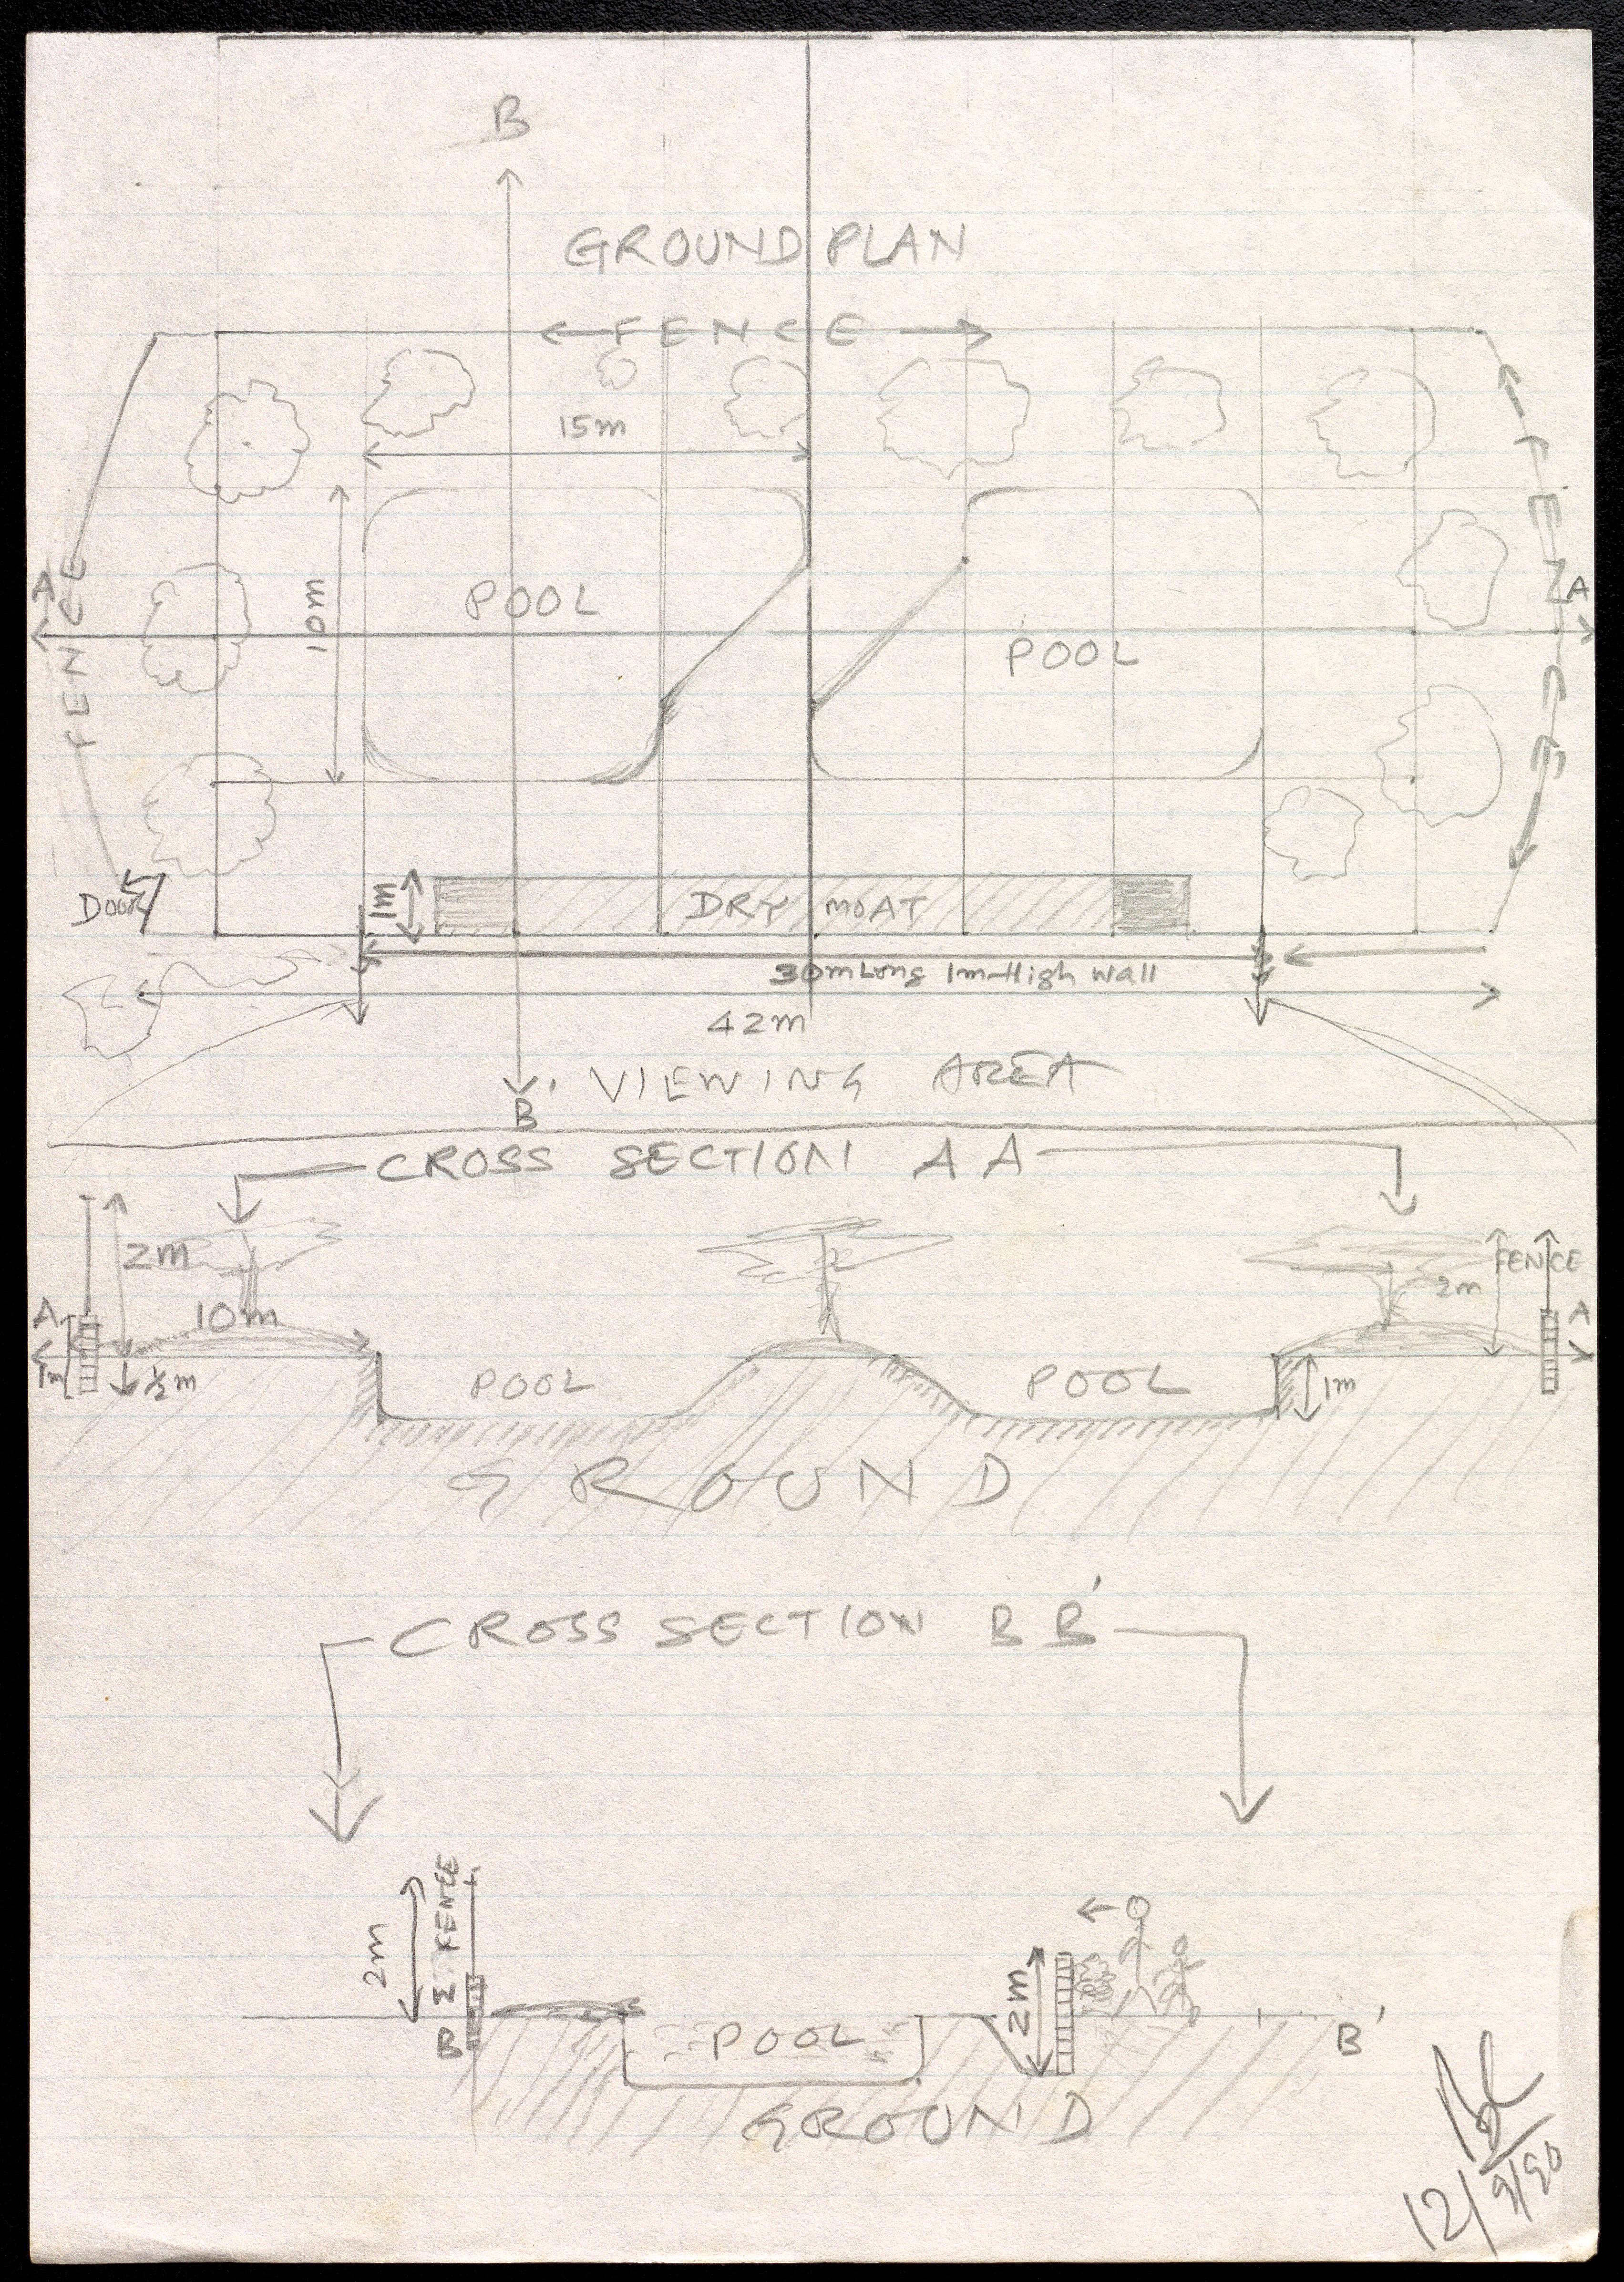 B
GROUND PLAN
FENCE
15m
10m
POOL
POOL
A
FENCE
A
FENCE
Door
1m
DRY MOAT
30m Long 1m High Wall
42m
B' VIEWING AREA
CROSS SECTION A A
2m
10m
A
1m
½m
FENCE
2m
A
POOL
POOL
1m
GROUND
CROSS SECTION B B'
2m
FENCE
B
POOL
2m
B'
GROUND
12/9/90